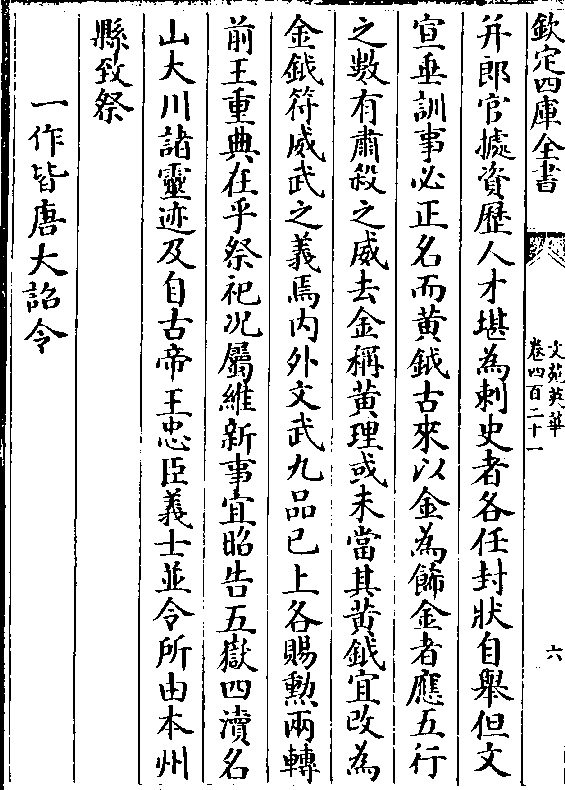 欽定四庫全書
文苑英華
卷四百二十一
六
并郎官據資歷人才堪為刺史者各任封狀自舉但文
宣垂訓事必正名而黃鉞古來以金為飾金者應五行
之數有肅殺之威去金稱黃理或未當其黃鉞宜改為
金鉞符威武之義焉内外文武九品已上各賜勲兩轉
前王重典在乎祭祀况屬維新事宜昭告五嶽四瀆名
山大川諸靈迹及自古帝王忠臣義士並令所由本州
縣致祭
一作皆唐大詔令